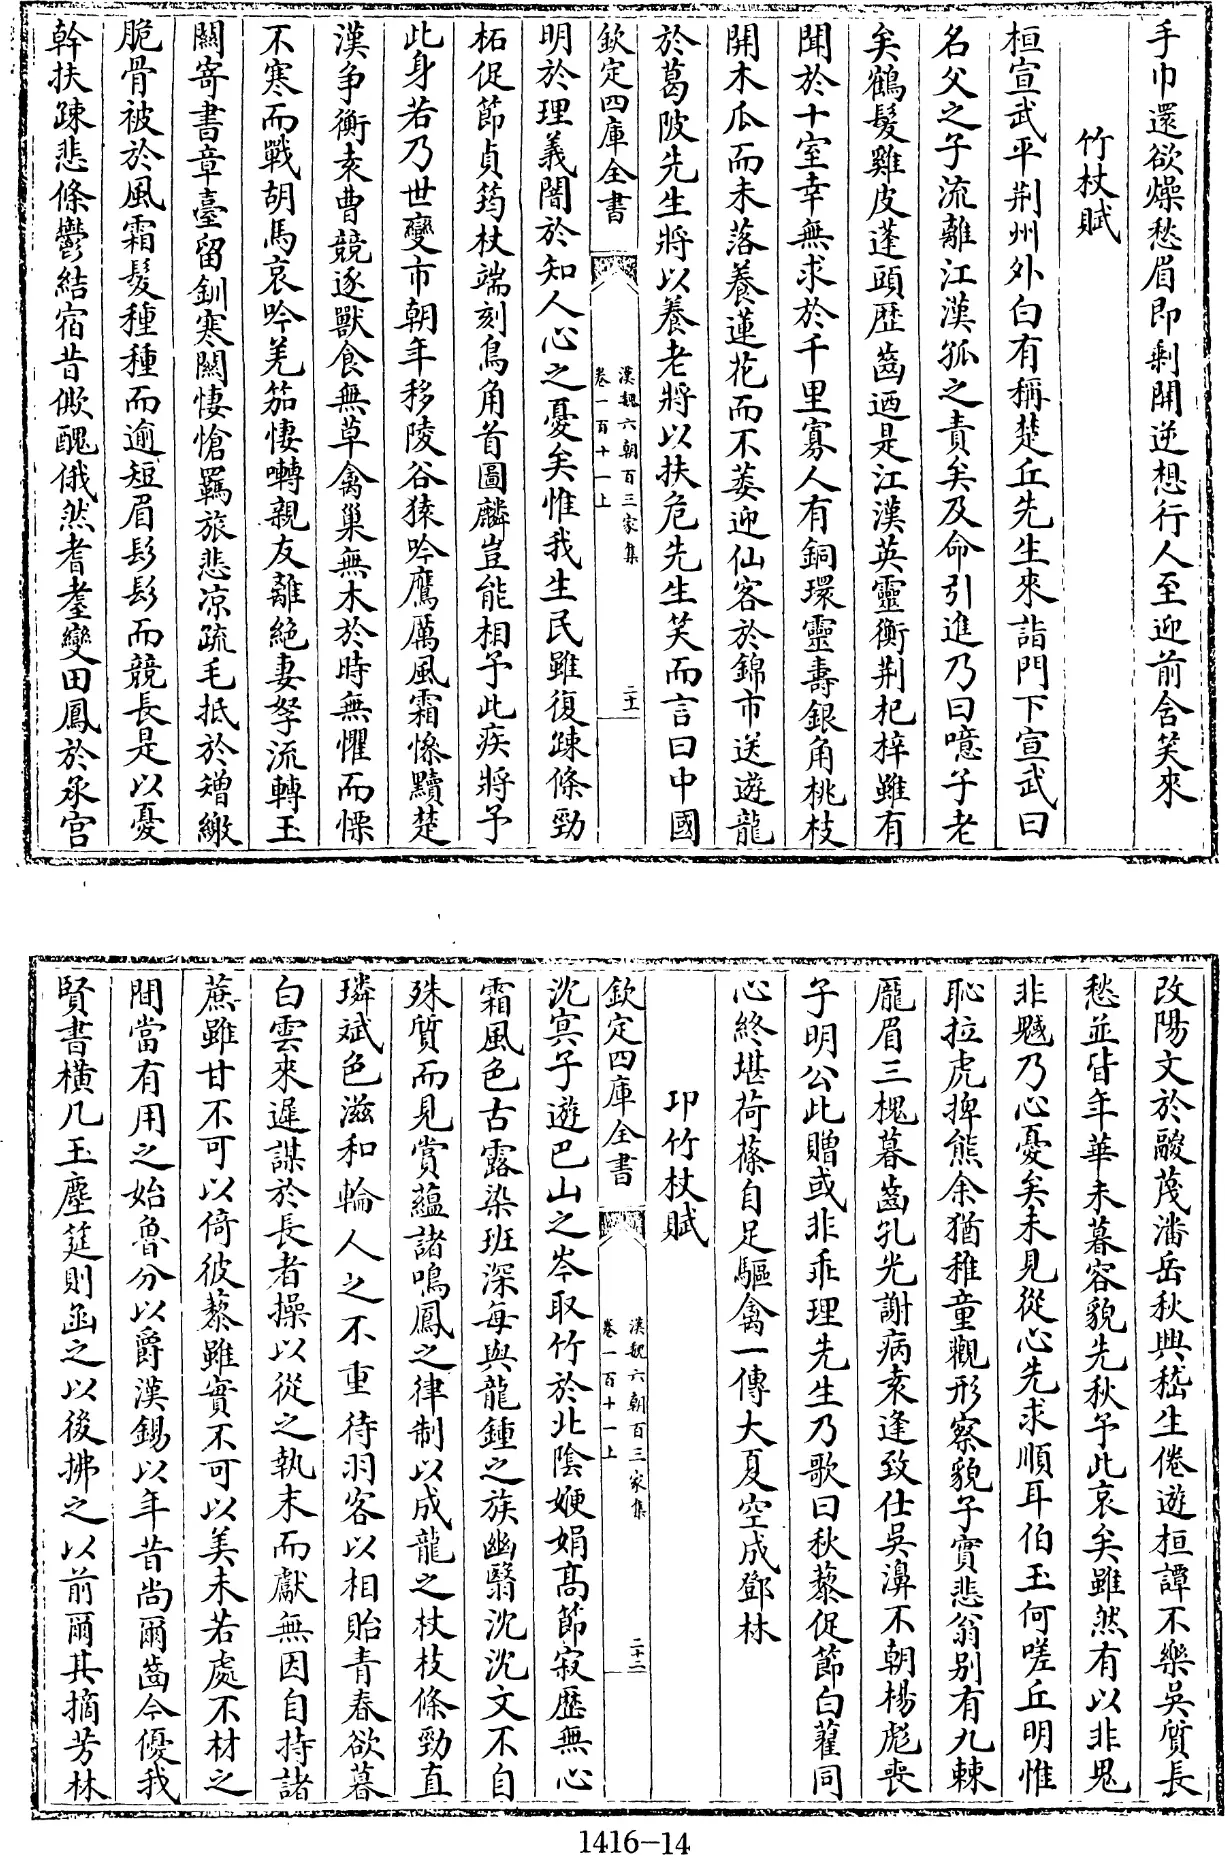 手巾還欲燥愁眉即剩開逆想行人至迎前含笑來
竹杖賦
桓宣武平荆州外白有稱楚丘先生來詣門下宣武曰
名父之子流離江漢孤之責矣及命引進乃曰噫子老
矣鶴髮雞皮蓬頭歴齒迺是江漢英靈衡荆杞梓雖有
聞於十室幸無求於千里寡人有銅環靈夀銀角桃枝
開木瓜而未落養蓮花而不萎迎仙客於錦市送遊龍
於葛陂先生將以養老將以扶危先生笑而言曰中國
欽定四庫全書
漢魏六朝百三家集
卷一百十一上
二十一
明於理義闇於知人心之憂矣惟我生民雖復疎條勁
柘促節貞筠杖端刻鳥角首圖麟豈能相予此疾將予
此身若乃世變市朝年移陵谷猿吟鷹厲風霜慘黷楚
漢爭衡袁曹競逐獸食無草禽巢無木於時無懼而慄
不寒而戰胡馬哀吟羌笳悽囀親友離絶妻孥流轉玉
關寄書章臺留釧寒關悽愴羈旅悲凉疏毛抵於矰繳
脆骨被於風霜髮種種而逾短眉髟髟而競長是以憂
幹扶疎悲條鬱結宿昔僛醜俄然耆耋變田鳳於承宫
改陽文於鬷蔑潘岳秋興嵇生倦遊桓譚不樂吳質長
愁並皆年華未暮容貌先秋予此衰矣雖然有以非鬼
非魊乃心憂矣未見從心先求順耳伯玉何嗟丘明惟
恥拉虎捭熊余猶稚童觀形察貌子實悲翁别有九棘
龎眉三槐暮齒孔光謝病袁逢致仕吳濞不朝楊彪喪
子明公此贈或非乖理先生乃歌曰秋藜促節白藋同
心終堪荷蓧自足驅禽一傳大夏空成鄧林
卭竹杖賦
欽定四庫全書
漢魏六朝百三家集
卷一百十一上
二十二
沈寞子遊巴山之岑取竹於北陰㛹娟髙節寂歴無心
霜風色古露染班深每與龍鍾之族幽翳沈沈文不自
殊質而見賞蘊諸鳴鳳之律制以成龍之杖枝條勁直
璘斌色滋和輪人之不重待羽客以相貽青春欲暮
白雲來遲謀於長者操以從之執末而獻無因自持諸
蔗雖甘不可以倚彼藜雖實不可以美未若處不材之
間當有用之始魯分以爵漢錫以年昔尚爾齒今優我
賢書横几玉塵筵則函之以後拂之以前爾其摘芳林
1416-14